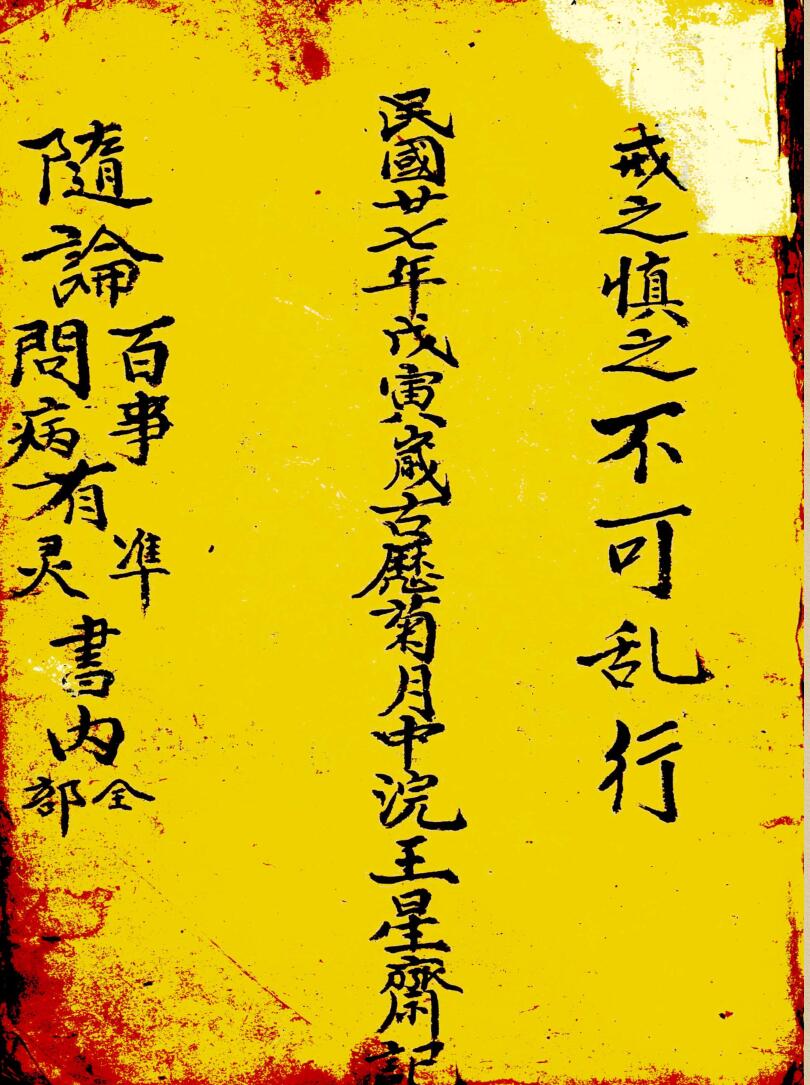 戒之慎之不可乱行
民國廿七年戊寅歲古歷菊月中浣王星齋記
隨論百事凖問病有灵書内全部